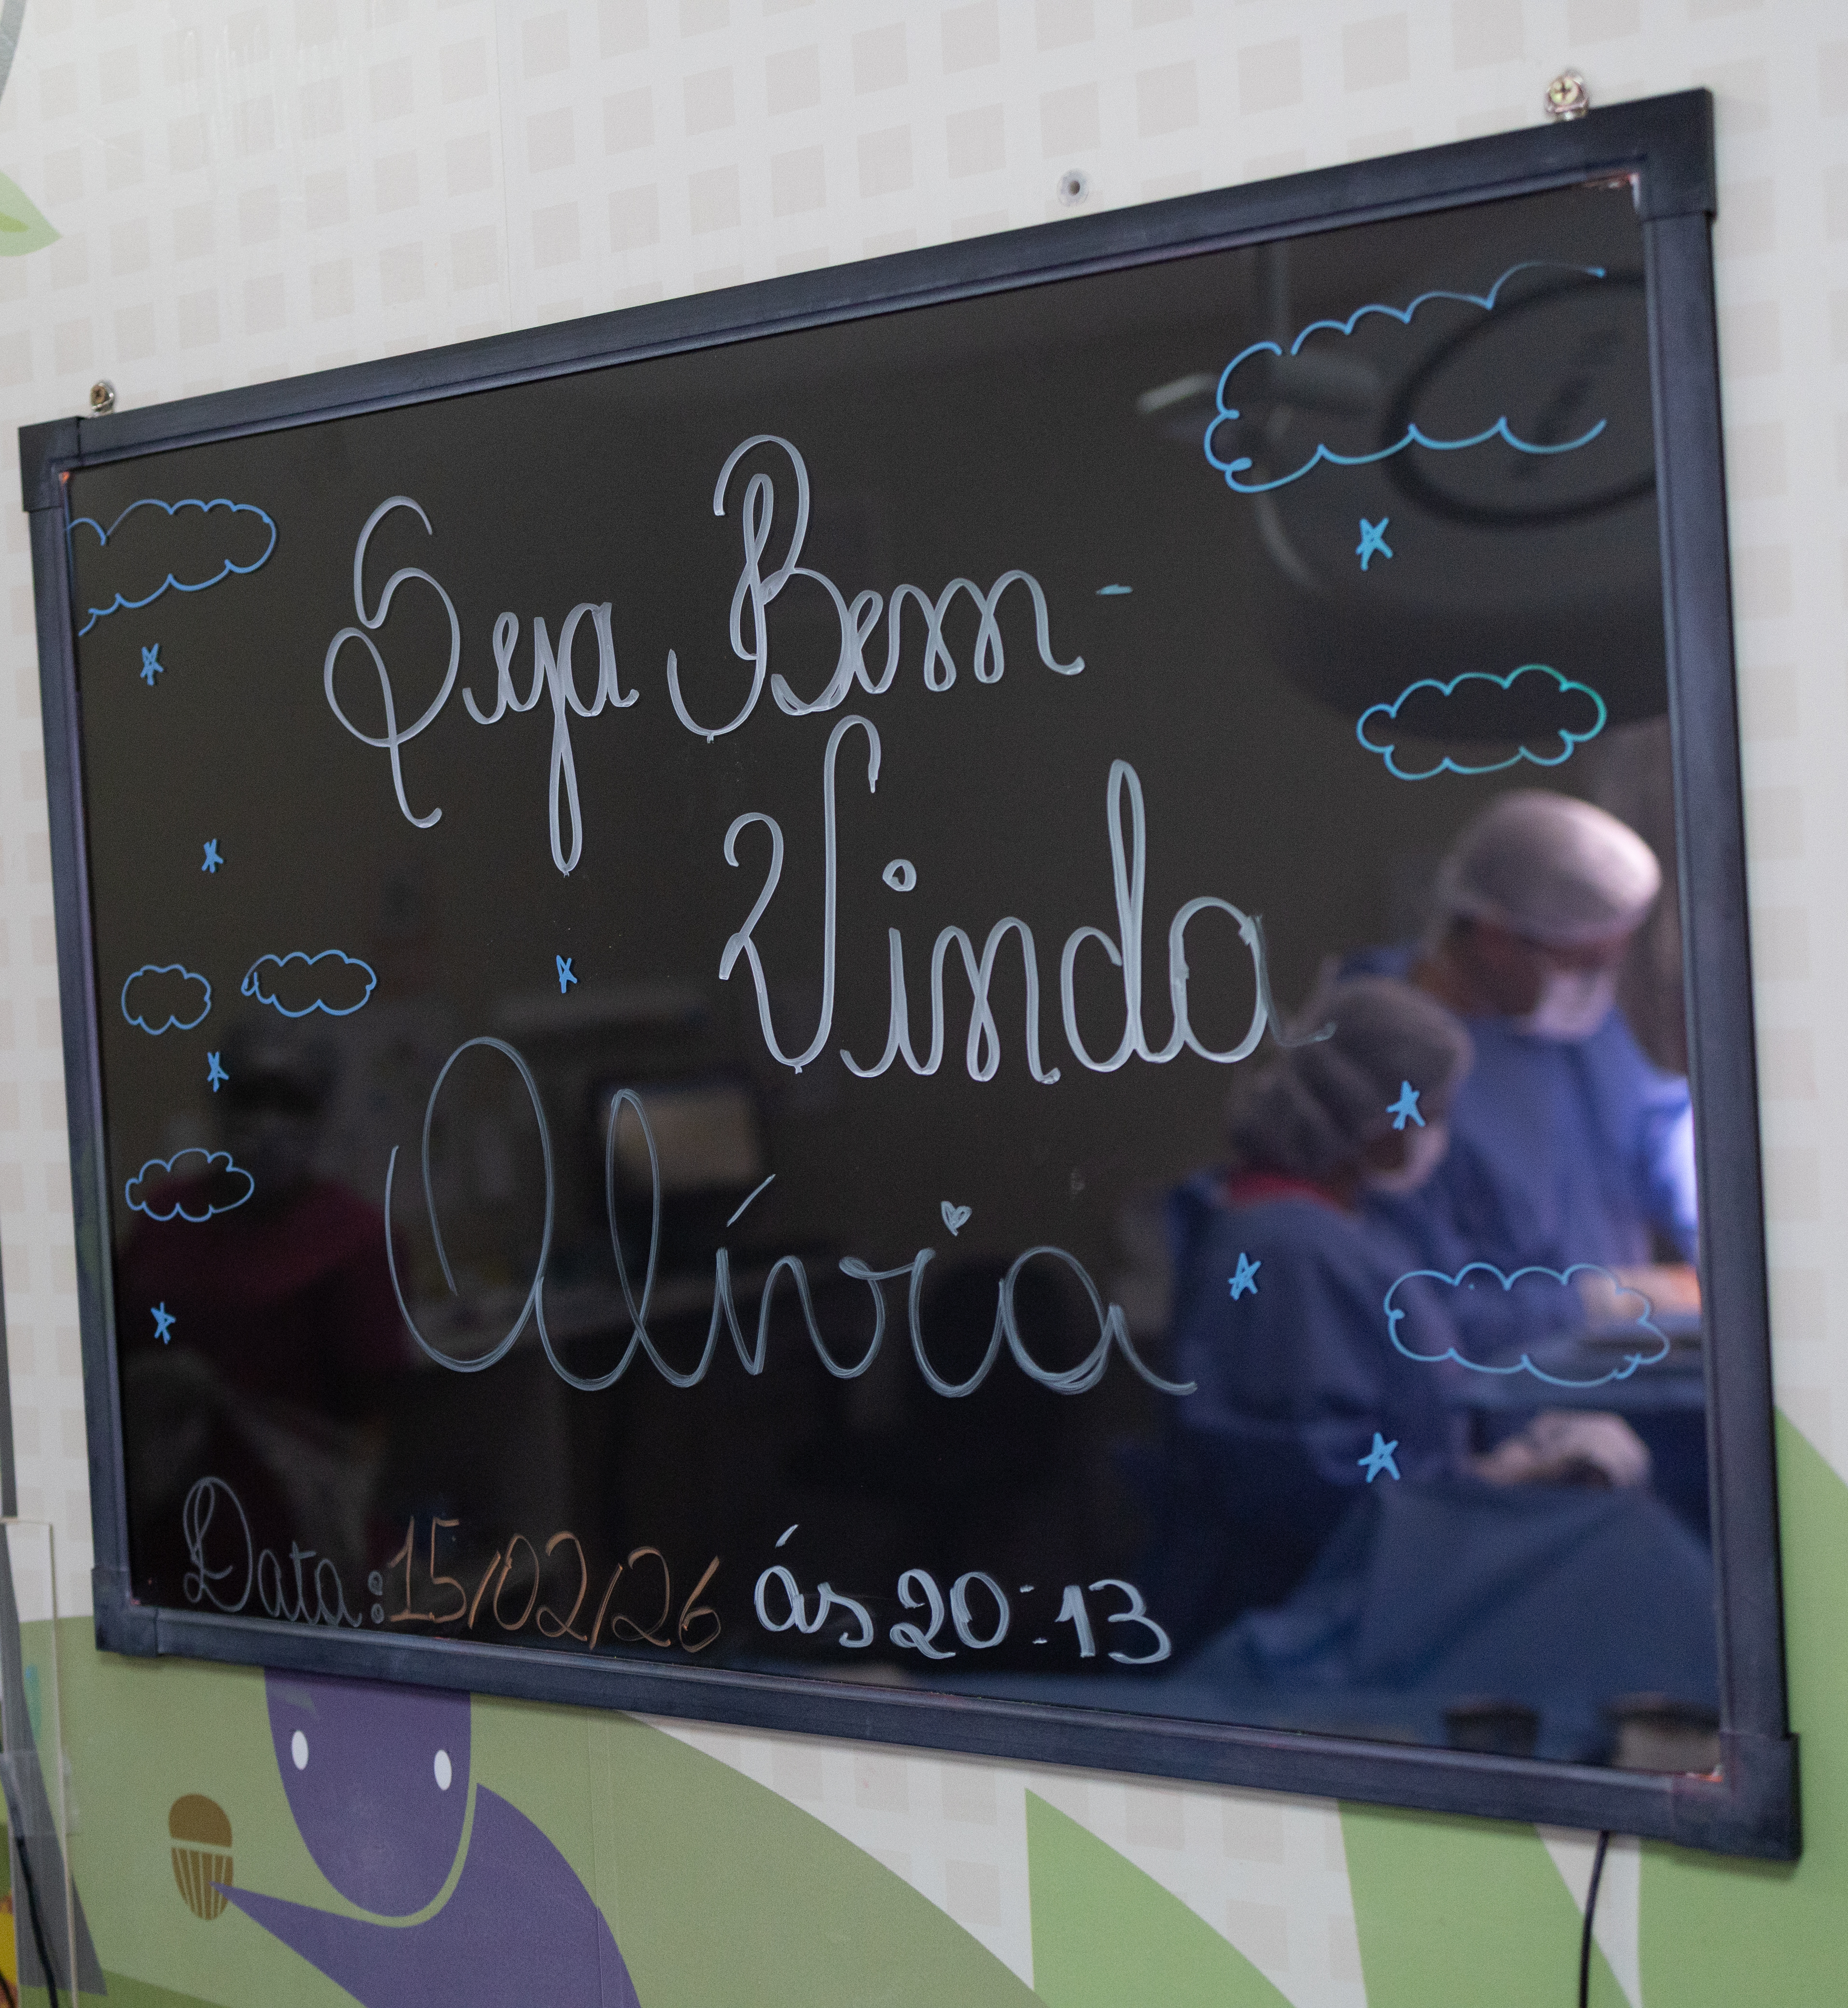 Seja Bem-
Vinda
Olívia
Data: 15/02/26 ás 20:13